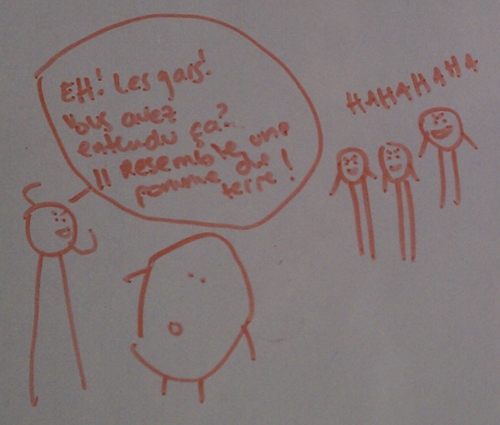 EH! Les gars!
Vous avez
entendu ça?
Il resemble une
pomme du
terre!
HAHAHAHA